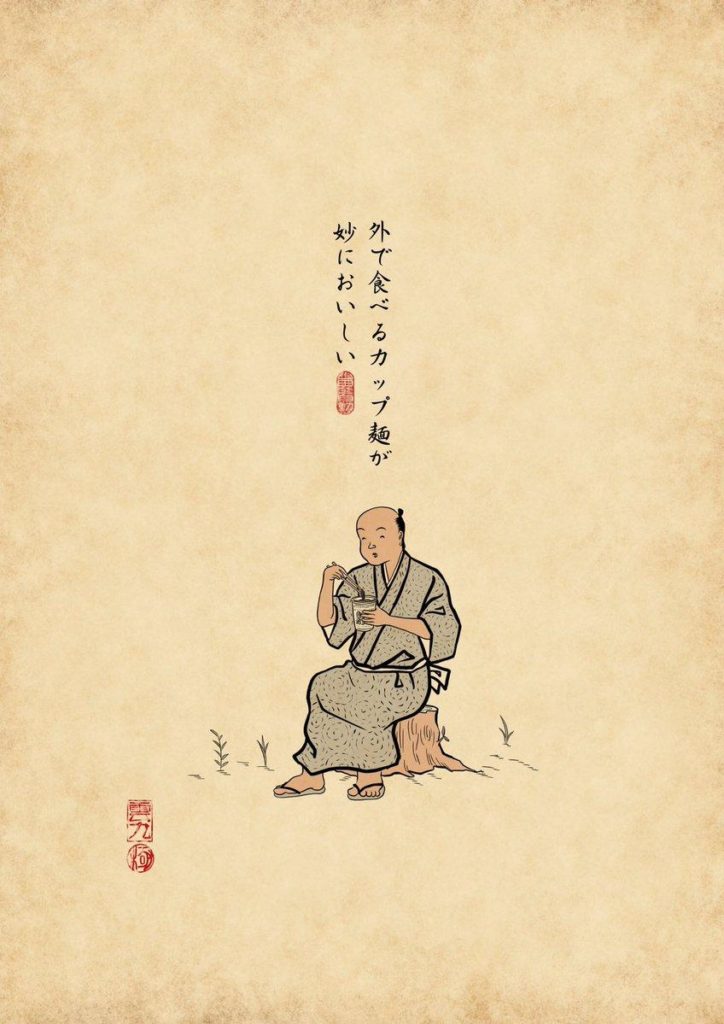 外で食べるカップ麺が
妙においしい